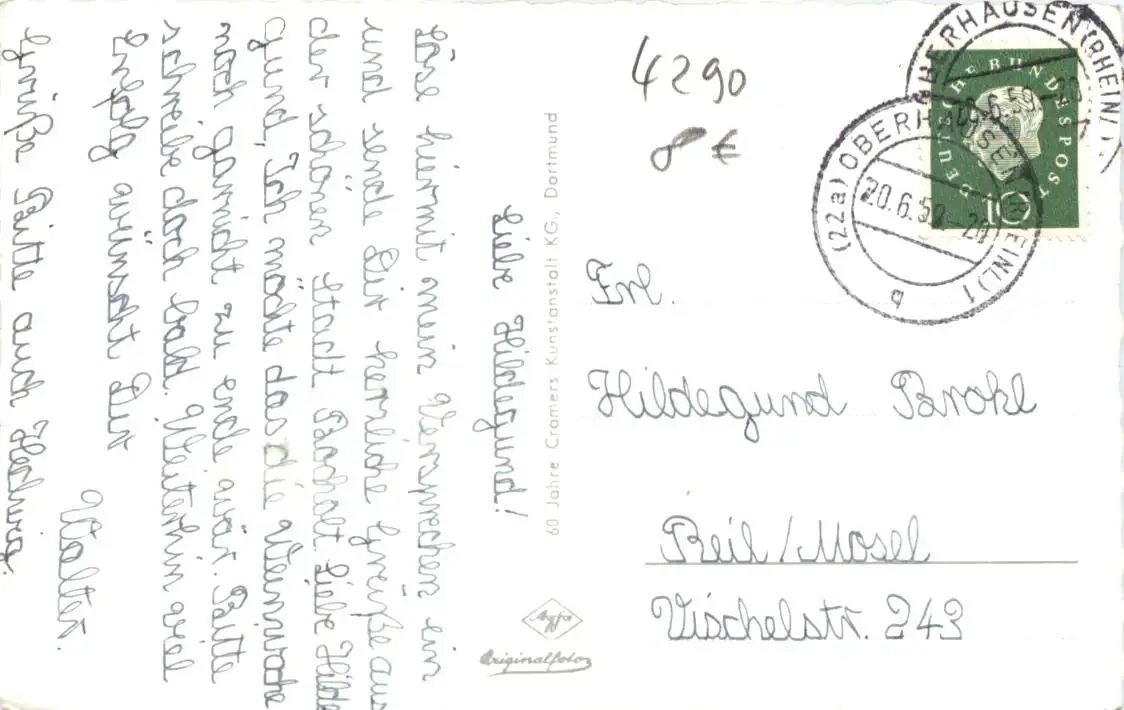 Liebe Hildegund!
Löse hiermit mein Versprechen ein
und sende Dir herrliche Grüße aus
der schönen Stadt Bocholt. Liebe Hilde
gund, Ich möchte das die Weinwoche
noch garnicht zu ende wär. Bitte
schreibe doch bald. Weiterhin viel
Erfolg wünscht Dir
Walter.
Grüße Bitte auch Hedwig.
60 Jahre Cramers Kunstanstalt KG., Dortmund
Agfa
Originalfoto
4290
8 €
OBERHAUSEN (RHEINL) 1
20.6.59.-20
(22a) OBERHAUSEN (RHEINL) 1
20.6.59.-20
b
DEUTSCHE BUNDESPOST
10
Frl.
Hildegund Brokl
Reil/Mosel
Vischelstr. 243